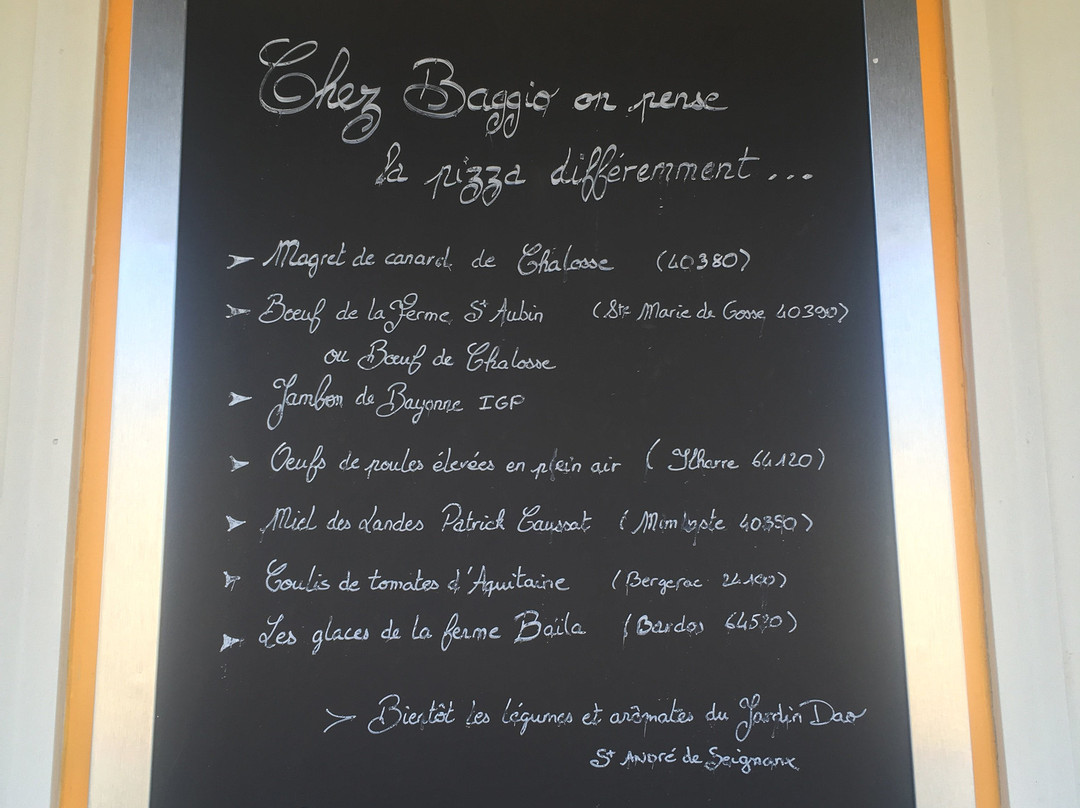 Chez Baggio on pense
la pizza différemment ...
➤ Magret de canard de Chalosse (40380)
➤ Bœuf de la Ferme St Aubin (Ste Marie de Gosse 40390)
ou Bœuf de Chalosse
➤ Jambon de Bayonne IGP
➤ Oeufs de poules élevées en plein air (Ilharre 64120)
➤ Miel des Landes Patrick Caussat (Mimbaste 40350)
➤ Coulis de tomates d'Aquitaine (Bergerac 24100)
➤ Les glaces de la ferme Baïla (Bardos 64520)
➤ Bientôt les légumes et arômates du Jardin Dao
St André de Seignanx